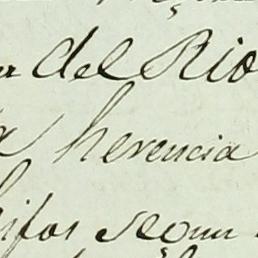 del Rio
herencia
hijos segun